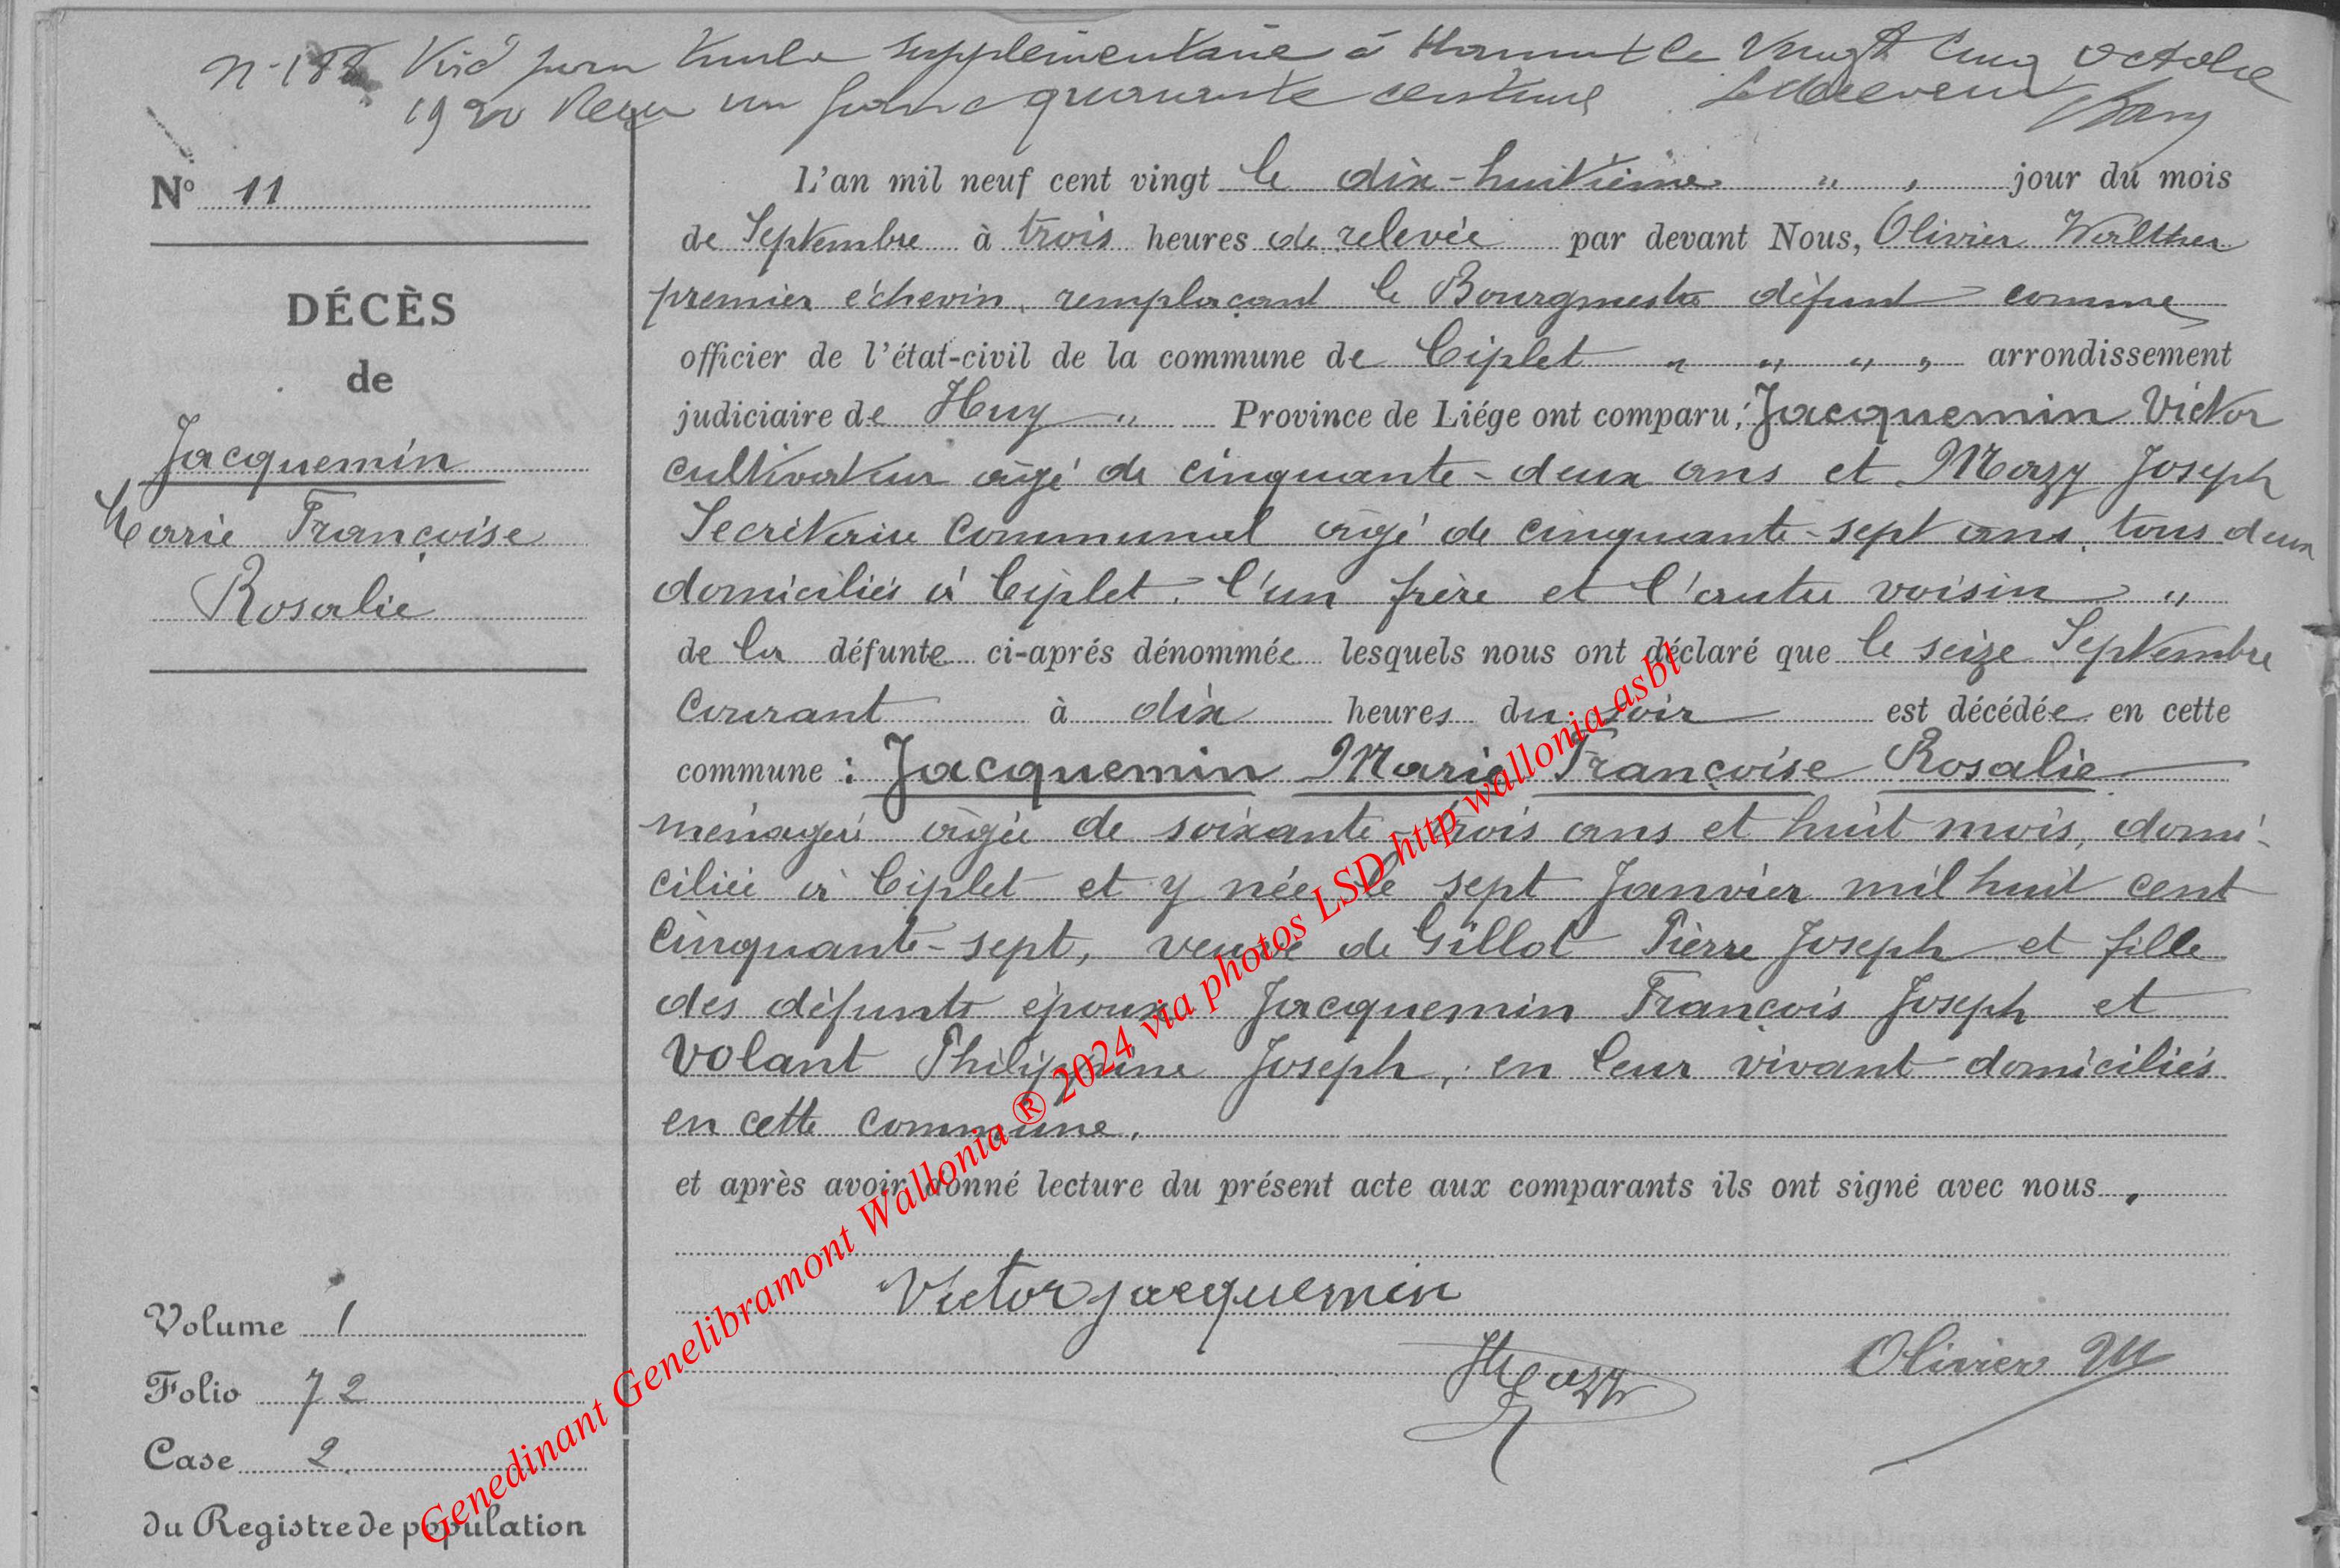 Visé pour timbre supplémentaire à Hannut le Vingt Cinq octobre
1920 Reçu un franc quarante centimes Le Receveur
N° 11
DÉCÈS
de
Jacquemin
Marie Françoise
Rosalie
L'an mil neuf cent vingt le dix-huitième " , jour du mois
de Septembre à trois heures de relevée par devant Nous, Olivier Walther
premier échevin, remplaçant le Bourgmestre défunt comme
officier de l'état-civil de la commune de Ciplet " " " , arrondissement
judiciaire de Huy " Province de Liége ont comparu : Jacquemin Victor
cultivateur âgé de cinquante-deux ans et Mazy Joseph
Secrétaire communal âgé de cinquante-sept ans, tous deux
domiciliés à Ciplet, l'un frère et l'autre voisin "
de la défunte ci-aprés dénommée lesquels nous ont déclaré que le seize Septembre
courant à dix heures du soir est décédée en cette
commune : Jacquemin Marie Françoise Rosalie
ménagère âgée de soixante-trois ans et huit mois, domi-
ciliée à Ciplet et y née le sept Janvier mil huit cent
cinquante-sept, veuve de Gillot Pierre Joseph et fille
des défunts époux Jacquemin François Joseph et
Volant Philippine Joseph, en leur vivant domiciliés
en cette commune.
et après avoir donné lecture du présent acte aux comparants ils ont signé avec nous.
Victor Jacquemin
JMazy
Olivier W
Volume 1
Folio 72
Case 2.
du Registre de population
Genedinant Genelibramont Wallonia ® 2024 via photos LSD http wallonia asbl